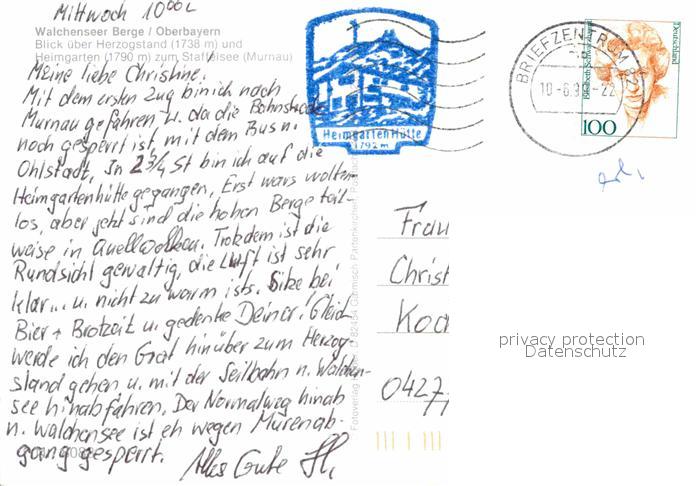 Mittwoch 10⁰⁰
Walchenseer Berge / Oberbayern
Blick über Herzogstand (1738 m) und
Heimgarten (1790 m) zum Staffelsee (Murnau)
Meine liebe Christine!
Mit dem ersten Zug bin ich nach
Murnau gefahren u. da die Bahnstrecke
noch gesperrt ist, mit dem Bus n.
Ohlstadt. In 2 3/4 St bin ich auf die
Heimgartenhütte gegangen. Erst wars wolken-
los, aber jetzt sind die hohen Berge teil-
weise in Quellwolken. Trotzdem ist die
Rundsicht gewaltig, die Luft ist sehr
klar... u. nicht zu warm ists. Sitze bei
Bier + Brotzeit u. gedenke Deiner! Gleich
werde ich den Grat hinüber zum Herzog-
stand gehen u. mit der Seilbahn n. Walchen-
see hinabfahren. Der Normalweg hinab
n. Walchensee ist eh wegen Murenab-
gang gesperrt.
Alles Gute
Heimgarten Hütte
1792 m
BRIEFZENTRUM
Deutschland
100
Frau
Christ
Koc
0427
privacy protection
Datenschutz